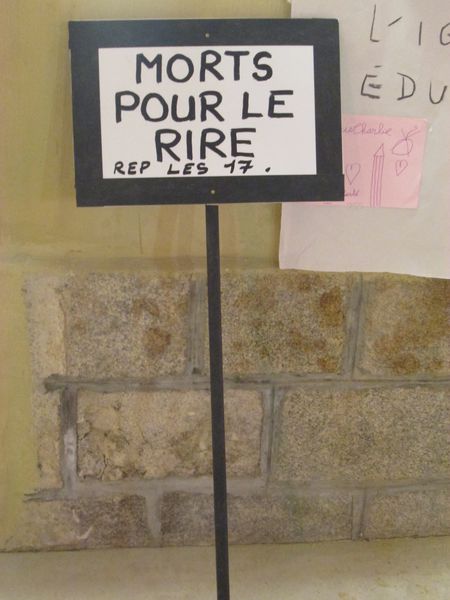 MORTS
POUR LE
RIRE
REP LES 17.
L'IG
ÉDU
Charlie